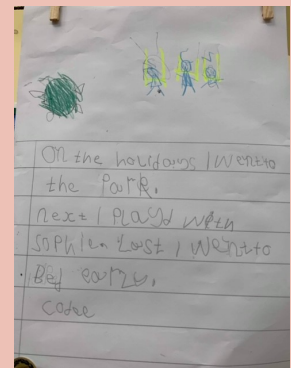 On the holidains I went to
the Park.
next I Playd with
Sophie. Last I went to
Bed early.